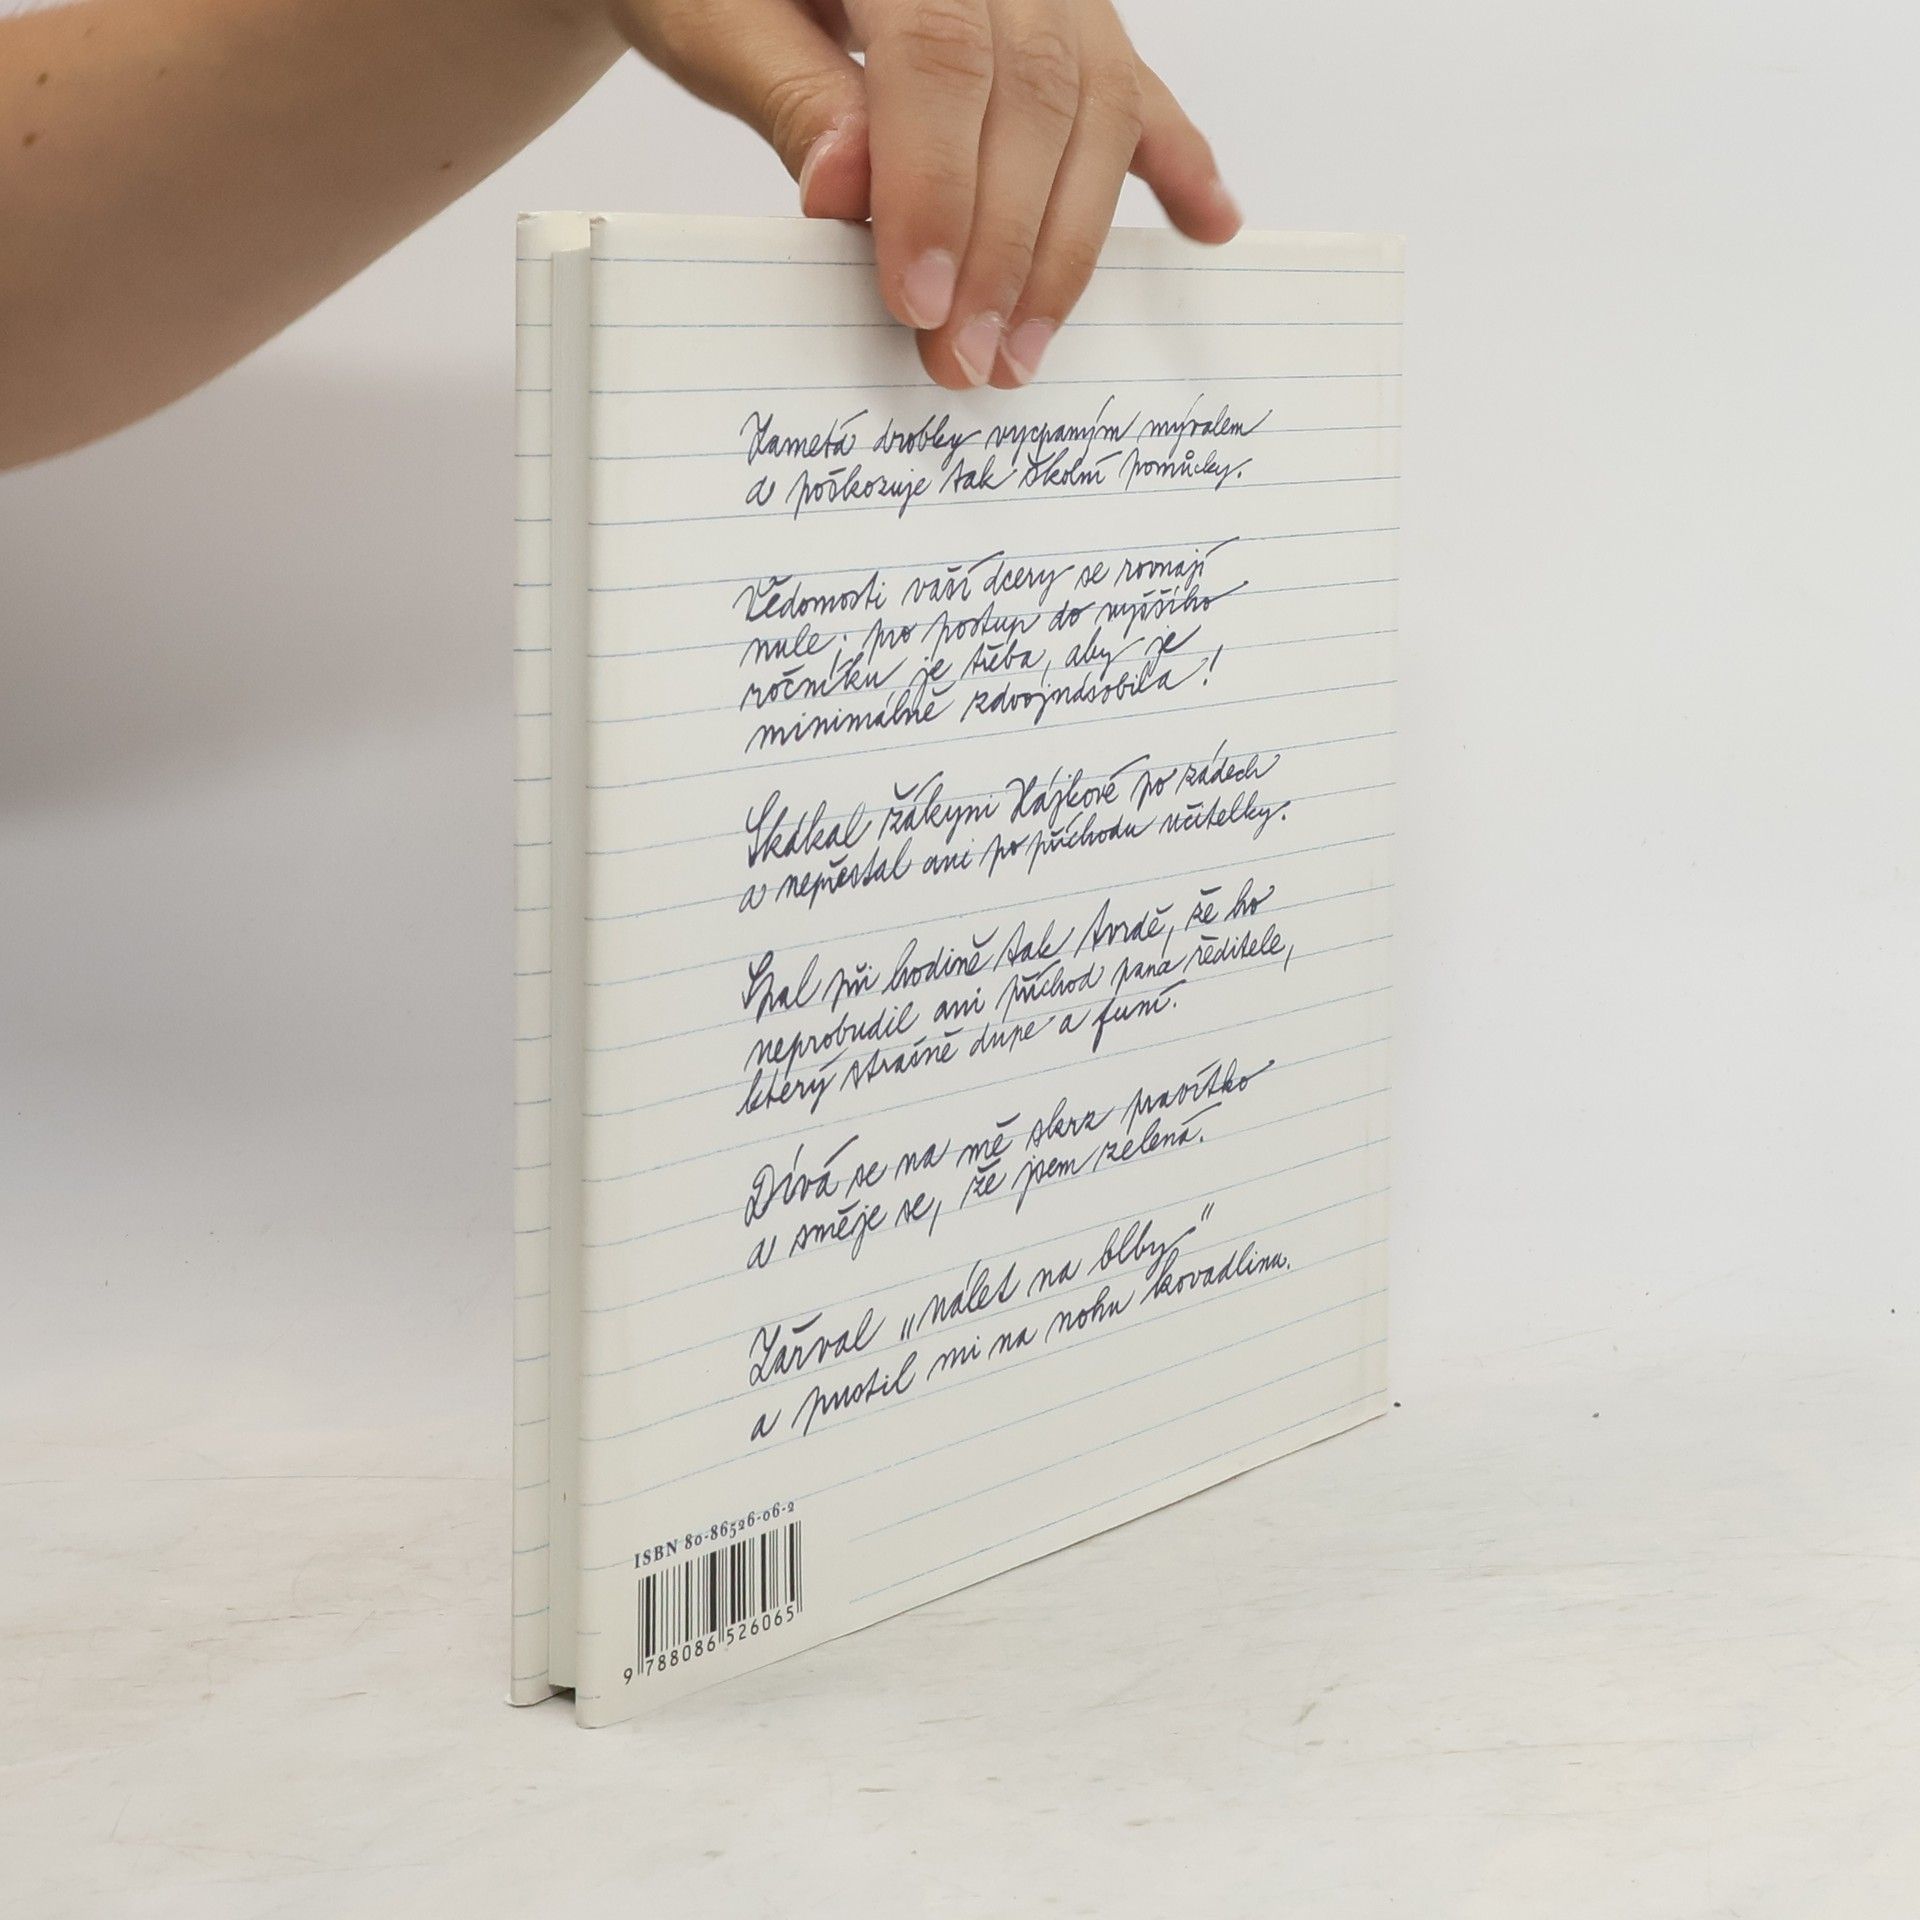 Zametá drobky vycpaným mývalem
a poškozuje tak školní pomůcky.
Vědomosti vaší dcery se rovnají
nule; pro postup do vyššího
ročníku je třeba, aby je
minimálně zdvojnásobila!
Skákal žákyni Hájkové po zádech
a nepřestal ani po příchodu učitelky.
Spal při hodině tak tvrdě, že ho
neprobudil ani příchod pana ředitele,
který strašně dupe a funí.
Dívá se na mě skrz pravítko
a směje se, že jsem zelená.
Zařval „nálet na blby"
a pustil mi na nohu kovadlinu.
ISBN 80-86526-06-2
9 788086 526065